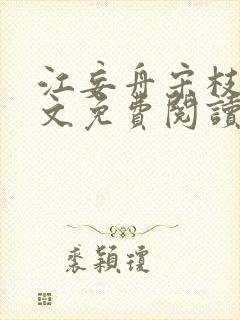 江妄舟宋枝
文免費閱讀
裘穎瓊